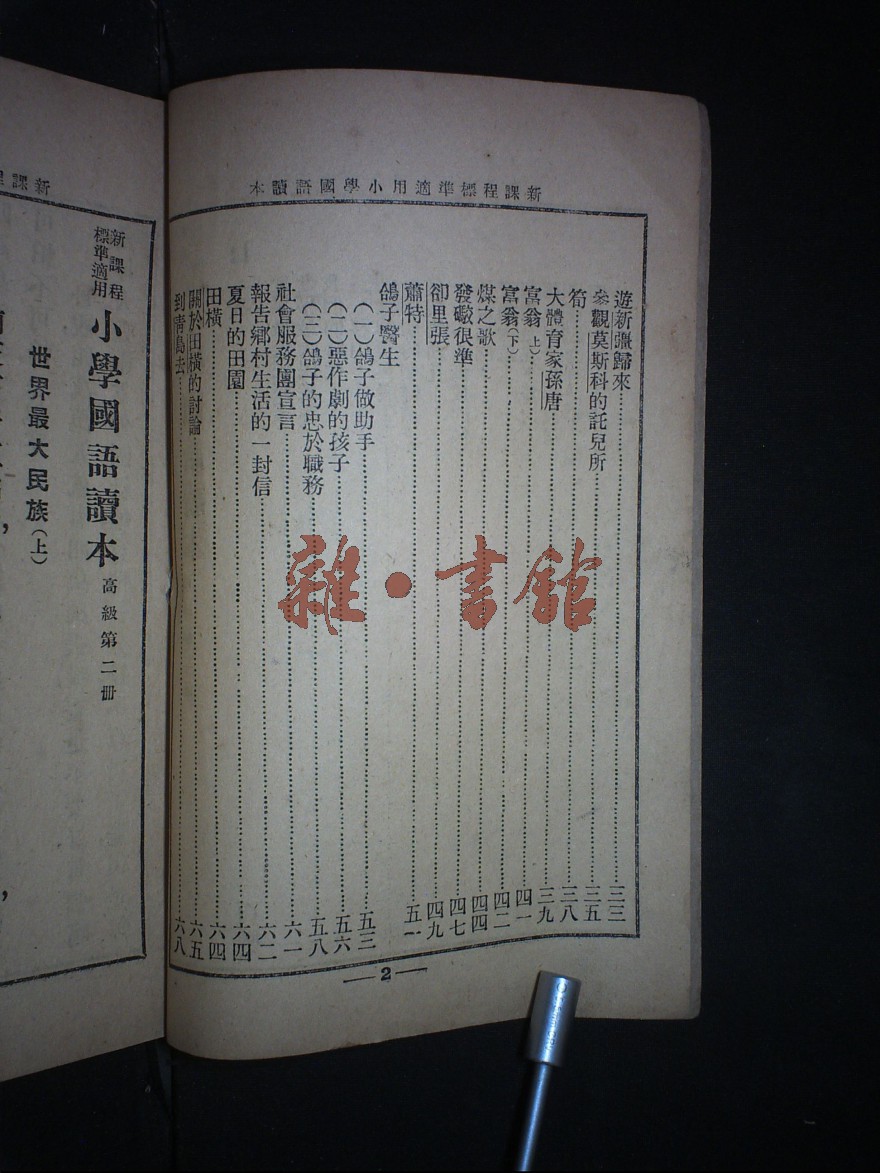 新課程標準適用小學國語讀本
遊新疆歸來……三三
參觀莫斯科的託兒所……三五
筍……三八
大體育家孫唐……三九
富翁(上)……四一
富翁(下)……四二
煤之歌……四四
發礮很準……四七
卻里張……四九
蕭特……五一
鴿子醫生
(一)鴿子做助手……五三
(二)惡作劇的孩子……五六
(三)鴿子的忠於職務……五八
社會服務團宣言……六一
報告鄉村生活的一封信……六二
夏日的田園……六四
田橫……六四
關於田橫的討論……六五
到靑島去……六八
2
新課程
新課程標準適用
小學國語讀本
高級第二冊
世界最大民族(上)
雜·書館